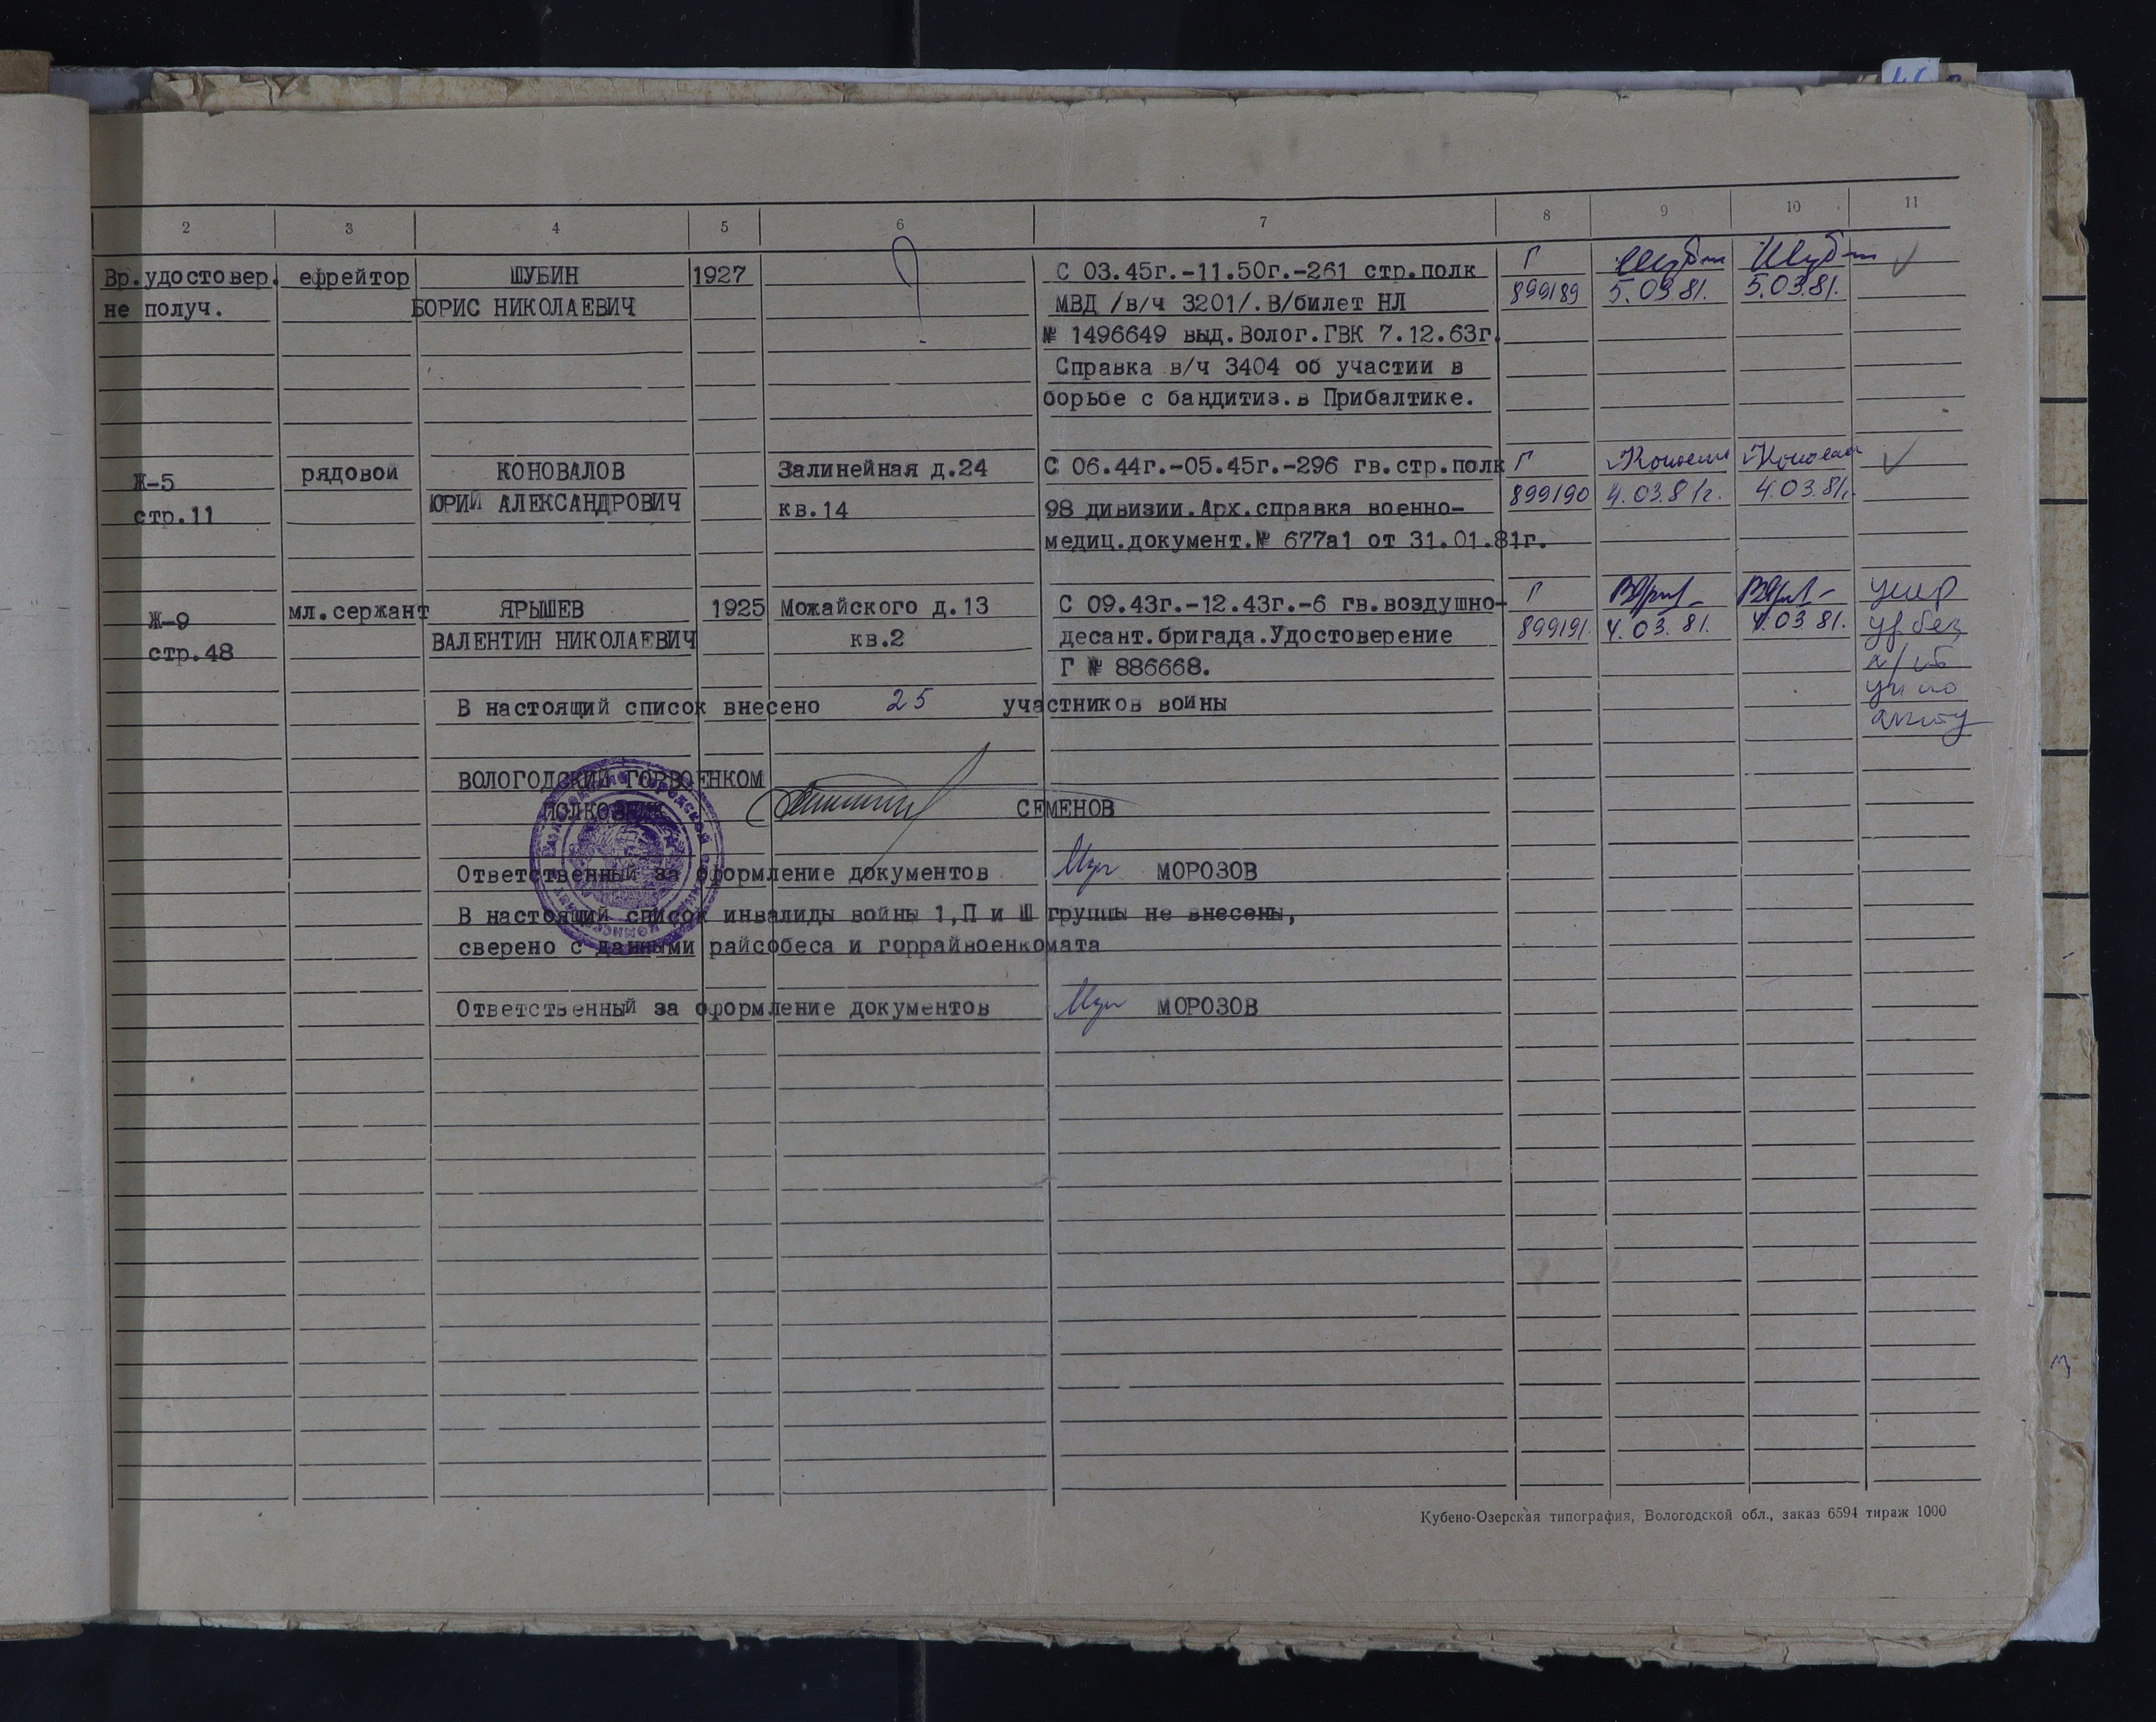 2 3 4 5 6 7 8 9 10 11
Вр.удостовер. ефрейтор ШУБИН 1927 С 03.45г.-11.50г.-261 стр.полк Г
не получ. БОРИС НИКОЛАЕВИЧ МВД /в/ч 3201/.В/билет НЛ 899189 5.03.81. 5.03.81.
№ 1496649 выд.Волог.ГВК 7.12.63г.
Справка в/ч 3404 об участии в
борьбе с бандитиз.в Прибалтике.
Ж-5 рядовой КОНОВАЛОВ Залинейная д.24 С 06.44г.-05.45г.-296 гв.стр.полк Г
стр.11 ЮРИЙ АЛЕКСАНДРОВИЧ кв.14 98 дивизии.Арх.справка военно- 899190 4.03.81г. 4.03.81г.
медиц.документ.№ 677а1 от 31.01.81г.
Ж-9 мл.сержант ЯРЫШЕВ 1925 Можайского д.13 С 09.43г.-12.43г.-6 гв.воздушно- Г умер
стр.48 ВАЛЕНТИН НИКОЛАЕВИЧ кв.2 десант.бригада.Удостоверение 899191. 4.03.81. 4.03.81.
Г № 886668.
В настоящий список внесено 25 участников войны
ВОЛОГОДСКИЙ ГОРВОЕНКОМ
ПОЛКОВНИК СЕМЕНОВ
Ответственный за оформление документов МОРОЗОВ
В настоящий список инвалиды войны 1,П и Ш группы не внесены,
сверено с данными райсобеса и горрайвоенкомата
Ответственный за оформление документов МОРОЗОВ
Кубено-Озерская типография, Вологодской обл., заказ 6594 тираж 1000